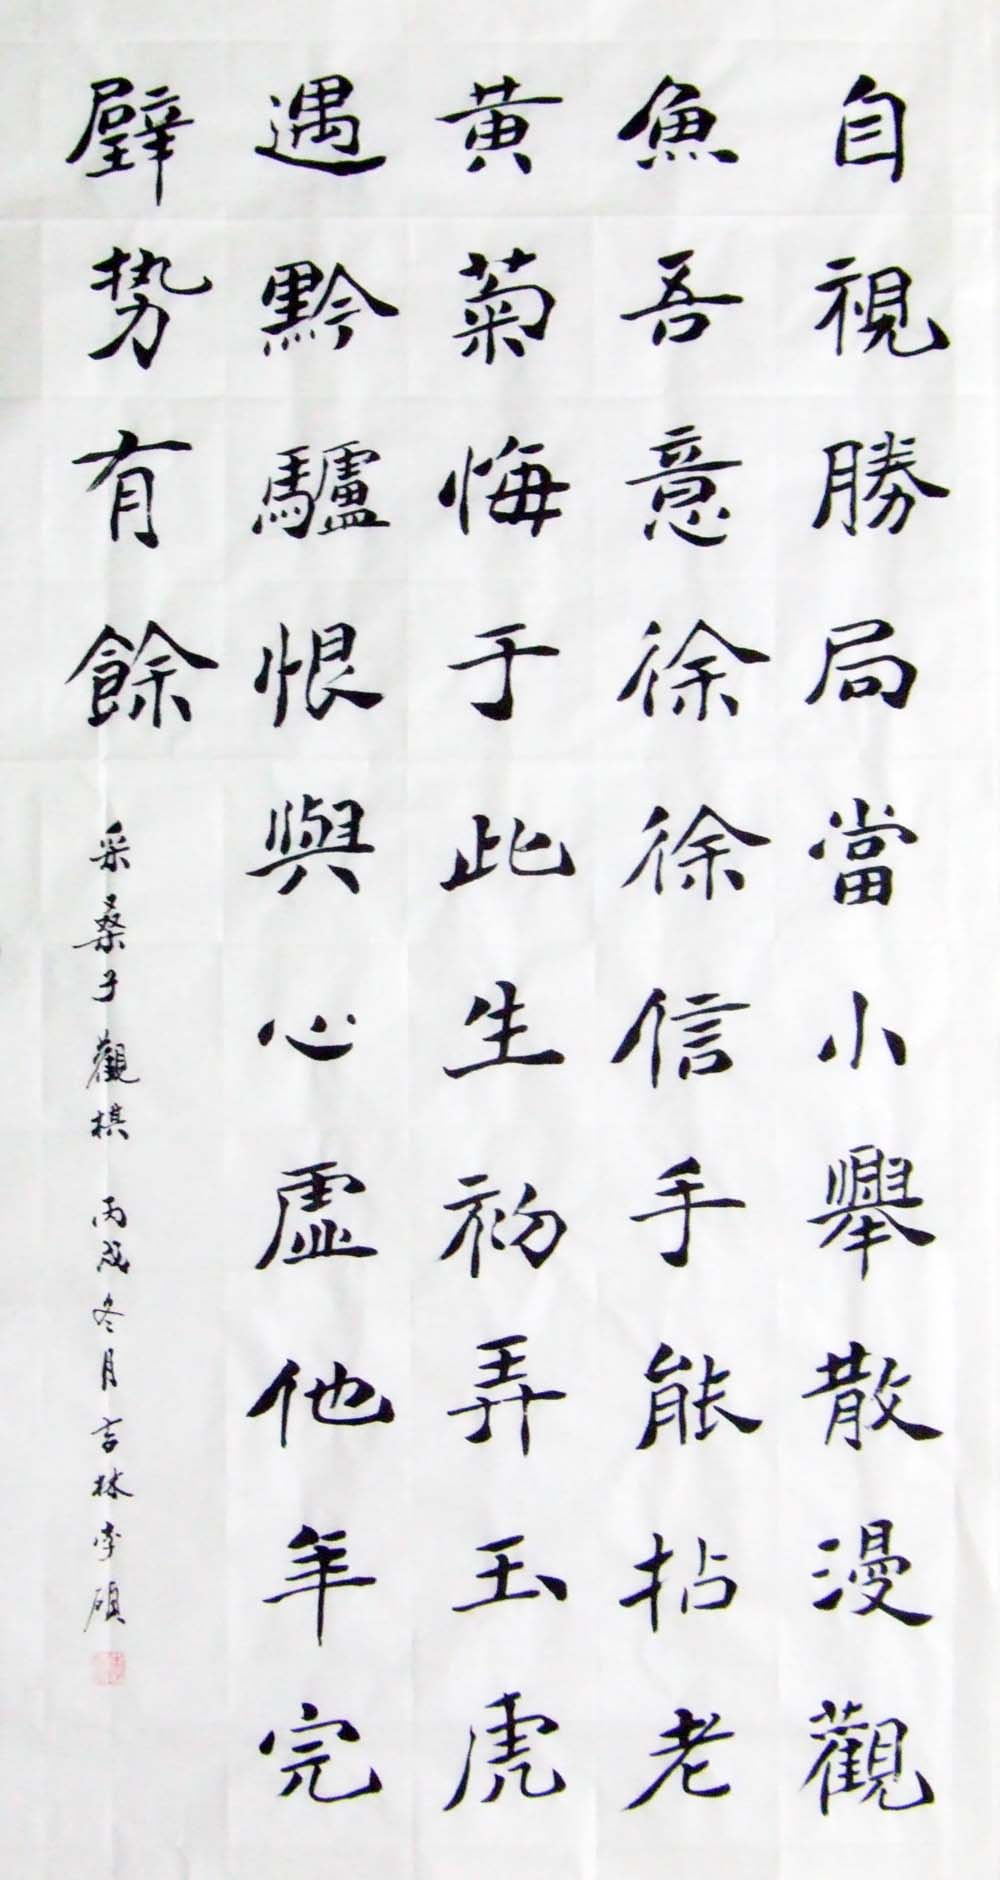 自視勝局當小舉散漫觀
魚吾意徐徐信手能拈老
黄菊悔于此生初弄玉虎
遇黔驢恨與心虛他年完
璧势有餘
采桑子觀棋 丙戌冬月吉林李碩